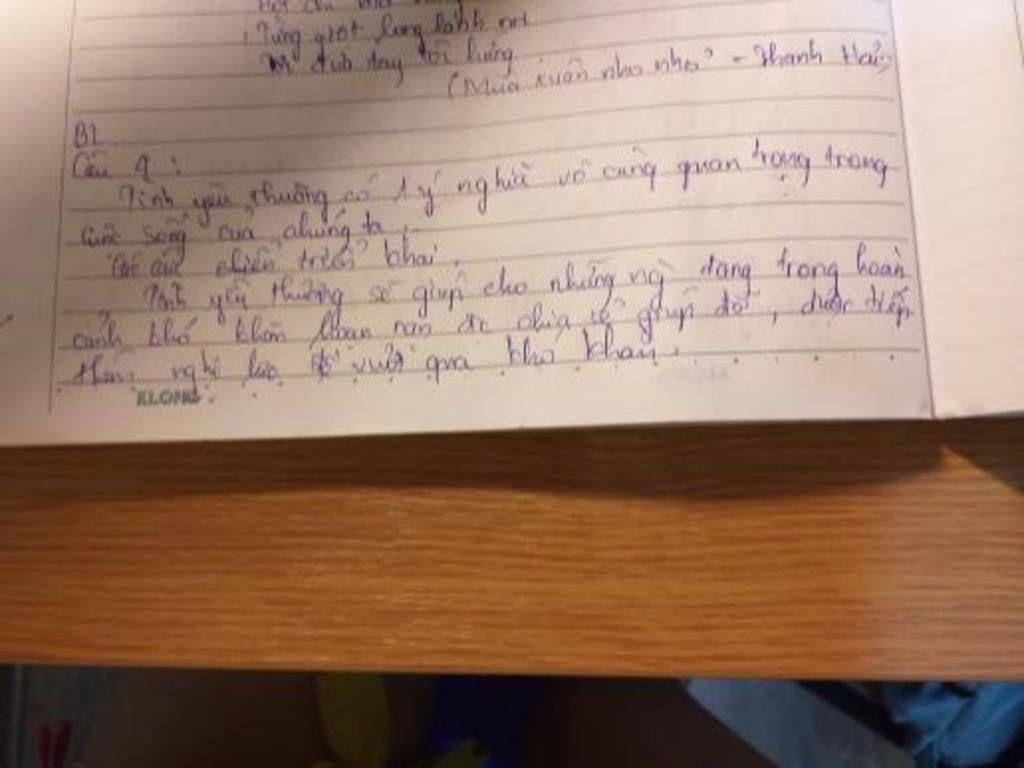 Từng giọt long lanh rơi
Tôi đưa tay tôi hứng
(Mùa xuân nho nhỏ - Thanh Hải)
B2
Câu 1:
Tình yêu thương có 1 ý nghĩa vô cùng quan trọng trong
cuộc sống của chúng ta.
triển khai.
Tình yêu thương sẽ giúp cho những ng đang trong hoàn
cảnh khó khăn hoạn nạn đc chia sẻ giúp đỡ, được tiếp
thêm nghị lực để vượt qua khó khăn.
KLONG